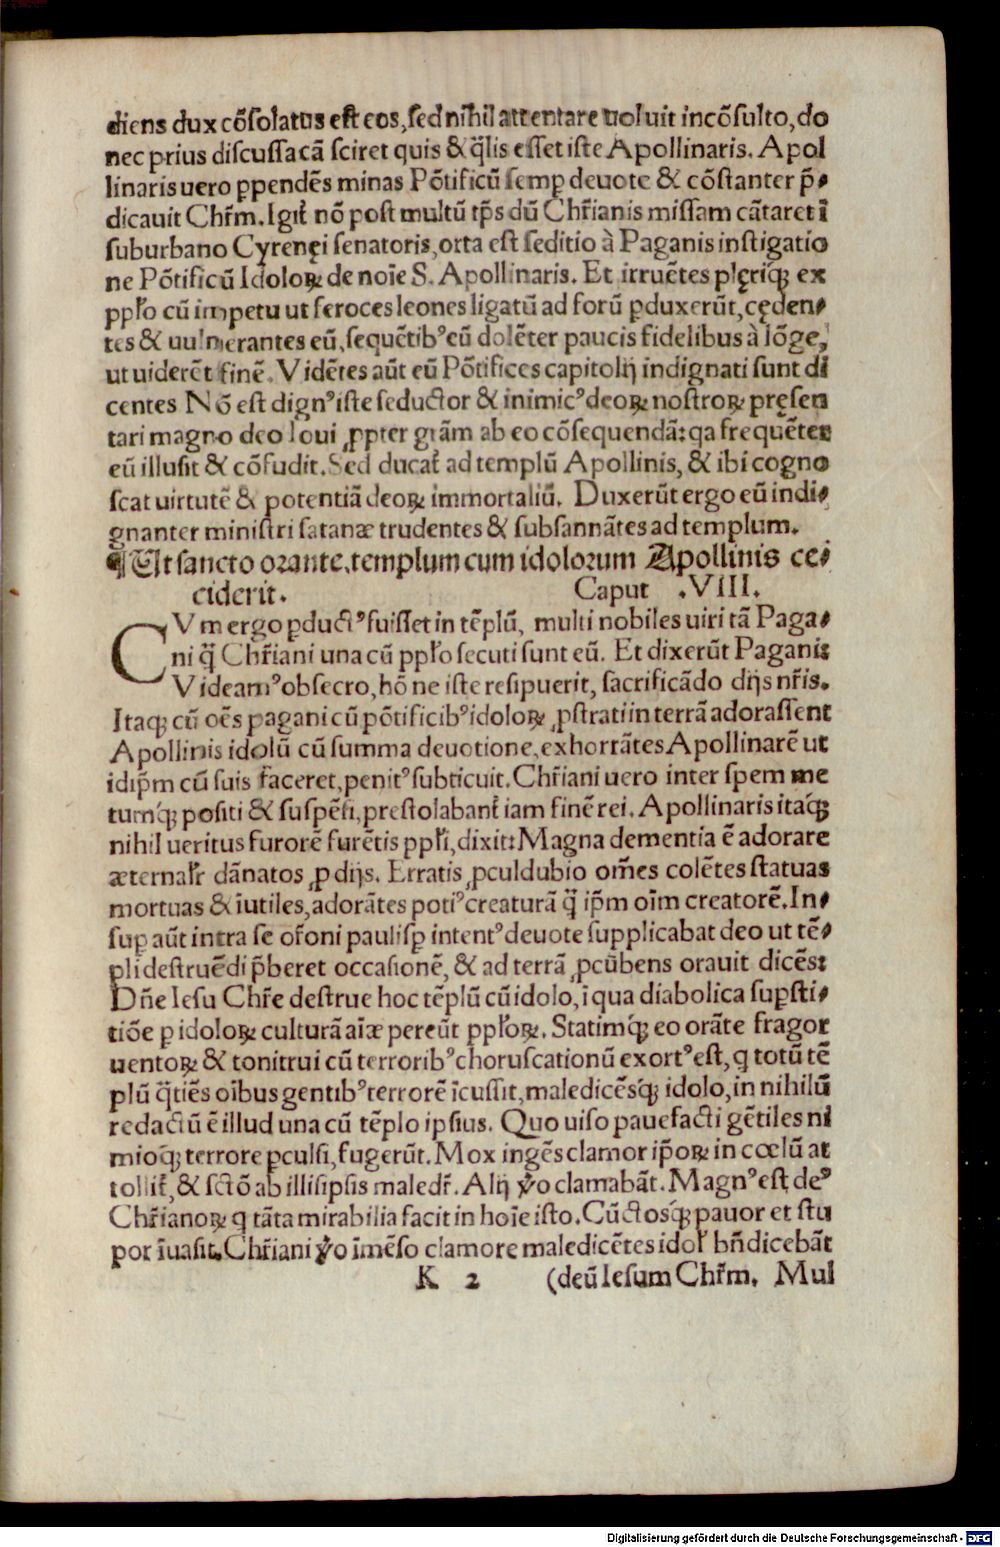 diens dux cõsolatus est eos, sed nihil attentare uoluit incõsulto, do
nec prius discussa cã sciret quis & q̃lis esset iste Apollinaris. Apol
linaris uero ꝑpendẽs minas Põtificũ semꝑ deuote & cõstanter p̃⸗
dicauit Chr̃m. Igit᷑ nõ post multũ tp̃s dũ Chr̃ianis missam cãtaret ĩ
suburbano Cyrenęi senatoris, orta est seditio à Paganis instigatio
ne Põtificũ Idoloꝝ de noĩe S. Apollinaris. Et irruẽtes plęriq; ex
pp̃lo cũ impetu ut feroces leones ligatũ ad forũ ꝑduxerũt, cęden⸗
tes & uulnerantes eũ, sequẽtibꝰ eũ dolẽter paucis fidelibus à lõge,
ut uiderẽt finẽ. Vidẽtes aũt eũ Põtifices capitolij indignati sunt di
centes Nõ est dignꝰ iste seductor & inimicꝰ deoꝝ nostroꝝ pręsen
tari magno deo Ioui ꝓpter gr̃am ab eo cõsequendã: qa frequẽter
eũ illusit & cõfudit. Sed ducat᷑ ad templũ Apollinis, & ibi cogno
scat uirtutẽ & potentiã deoꝝ immortaliũ. Duxerũt ergo eũ indi⸗
gnanter ministri satanæ trudentes & subsannãtes ad templum.
¶ Ut sancto orante, templum cum idolorum Apollinis ce⸗
ciderit. Caput .VIII.
CVm ergo ꝑductꝰ fuisset in tẽplũ, multi nobiles uiri tã Paga⸗
ni q̃ Chr̃iani una cũ pp̃lo secuti sunt eũ. Et dixerũt Pagani:
Videamꝰ obsecro, hõ ne iste resipuerit, sacrificãdo dijs nr̃is.
Itaq; cũ oẽs pagani cũ põtificibꝰ idoloꝝ ꝓstrati in terrã adorassent
Apollinis idolũ cũ summa deuotione, exhorrãtes Apollinarẽ ut
idip̃m cũ suis faceret, penitꝰ subticuit. Chr̃iani uero inter spem me
tumq́; positi & suspẽsi, prestolabant᷑ iam finẽ rei. Apollinaris itaq́;
nihil ueritus furorẽ furẽtis pp̃li, dixit: Magna dementia ẽ adorare
æternal᷑r dãnatos ꝓ dijs. Erratis ꝓculdubio om̃es colẽtes statuas
mortuas & ĩutiles, adorãtes potiꝰ creaturã q̃ ip̃m oĩm creatorẽ. In⸗
suꝑ aũt intra se or̃oni paulisꝑ intentꝰ deuote supplicabat deo ut tẽ⸗
pli destruẽdi p̃beret occasionẽ, & ad terrã ꝓcũbens orauit dicẽs:
Dñe Iesu Chr̃e destrue hoc tẽplũ cũ idolo, ĩ qua diabolica suꝑsti⸗
tiõe ꝑ idoloꝝ culturã aĩæ pereũt pp̃loꝝ. Statimq́; eo orãte fragor
uentoꝝ & tonitrui cũ terroribꝰ choruscationũ exortꝰ est, q totũ tẽ
plũ q̃tiẽs oĩbus gentibꝰ terrorẽ ĩcussit, maledicẽsq́; idolo, in nihilũ
redactũ ẽ illud una cũ tẽplo ipsius. Quo uiso pauefacti gẽtiles ni
mioq́; terrore ꝑculsi, fugerũt. Mox ingẽs clamor ip̃oꝝ in cœlũ at
tollit᷑, & sctõ ab illis ipsis maledr̃. Alij v̊o clamabãt. Magnꝰ est deꝰ
Chr̃ianoꝝ q tãta mirabilia facit in hoĩe isto. Cũctosq́; pauor et stu
por ĩuasit. Chr̃iani v̊o ĩmẽso clamore maledicẽtes idol᷑ bñdicebãt
K 2 (deũ Iesum Chr̃m. Mul
Digitalisierung gefördert durch die Deutsche Forschungsgemeinschaft - DFG